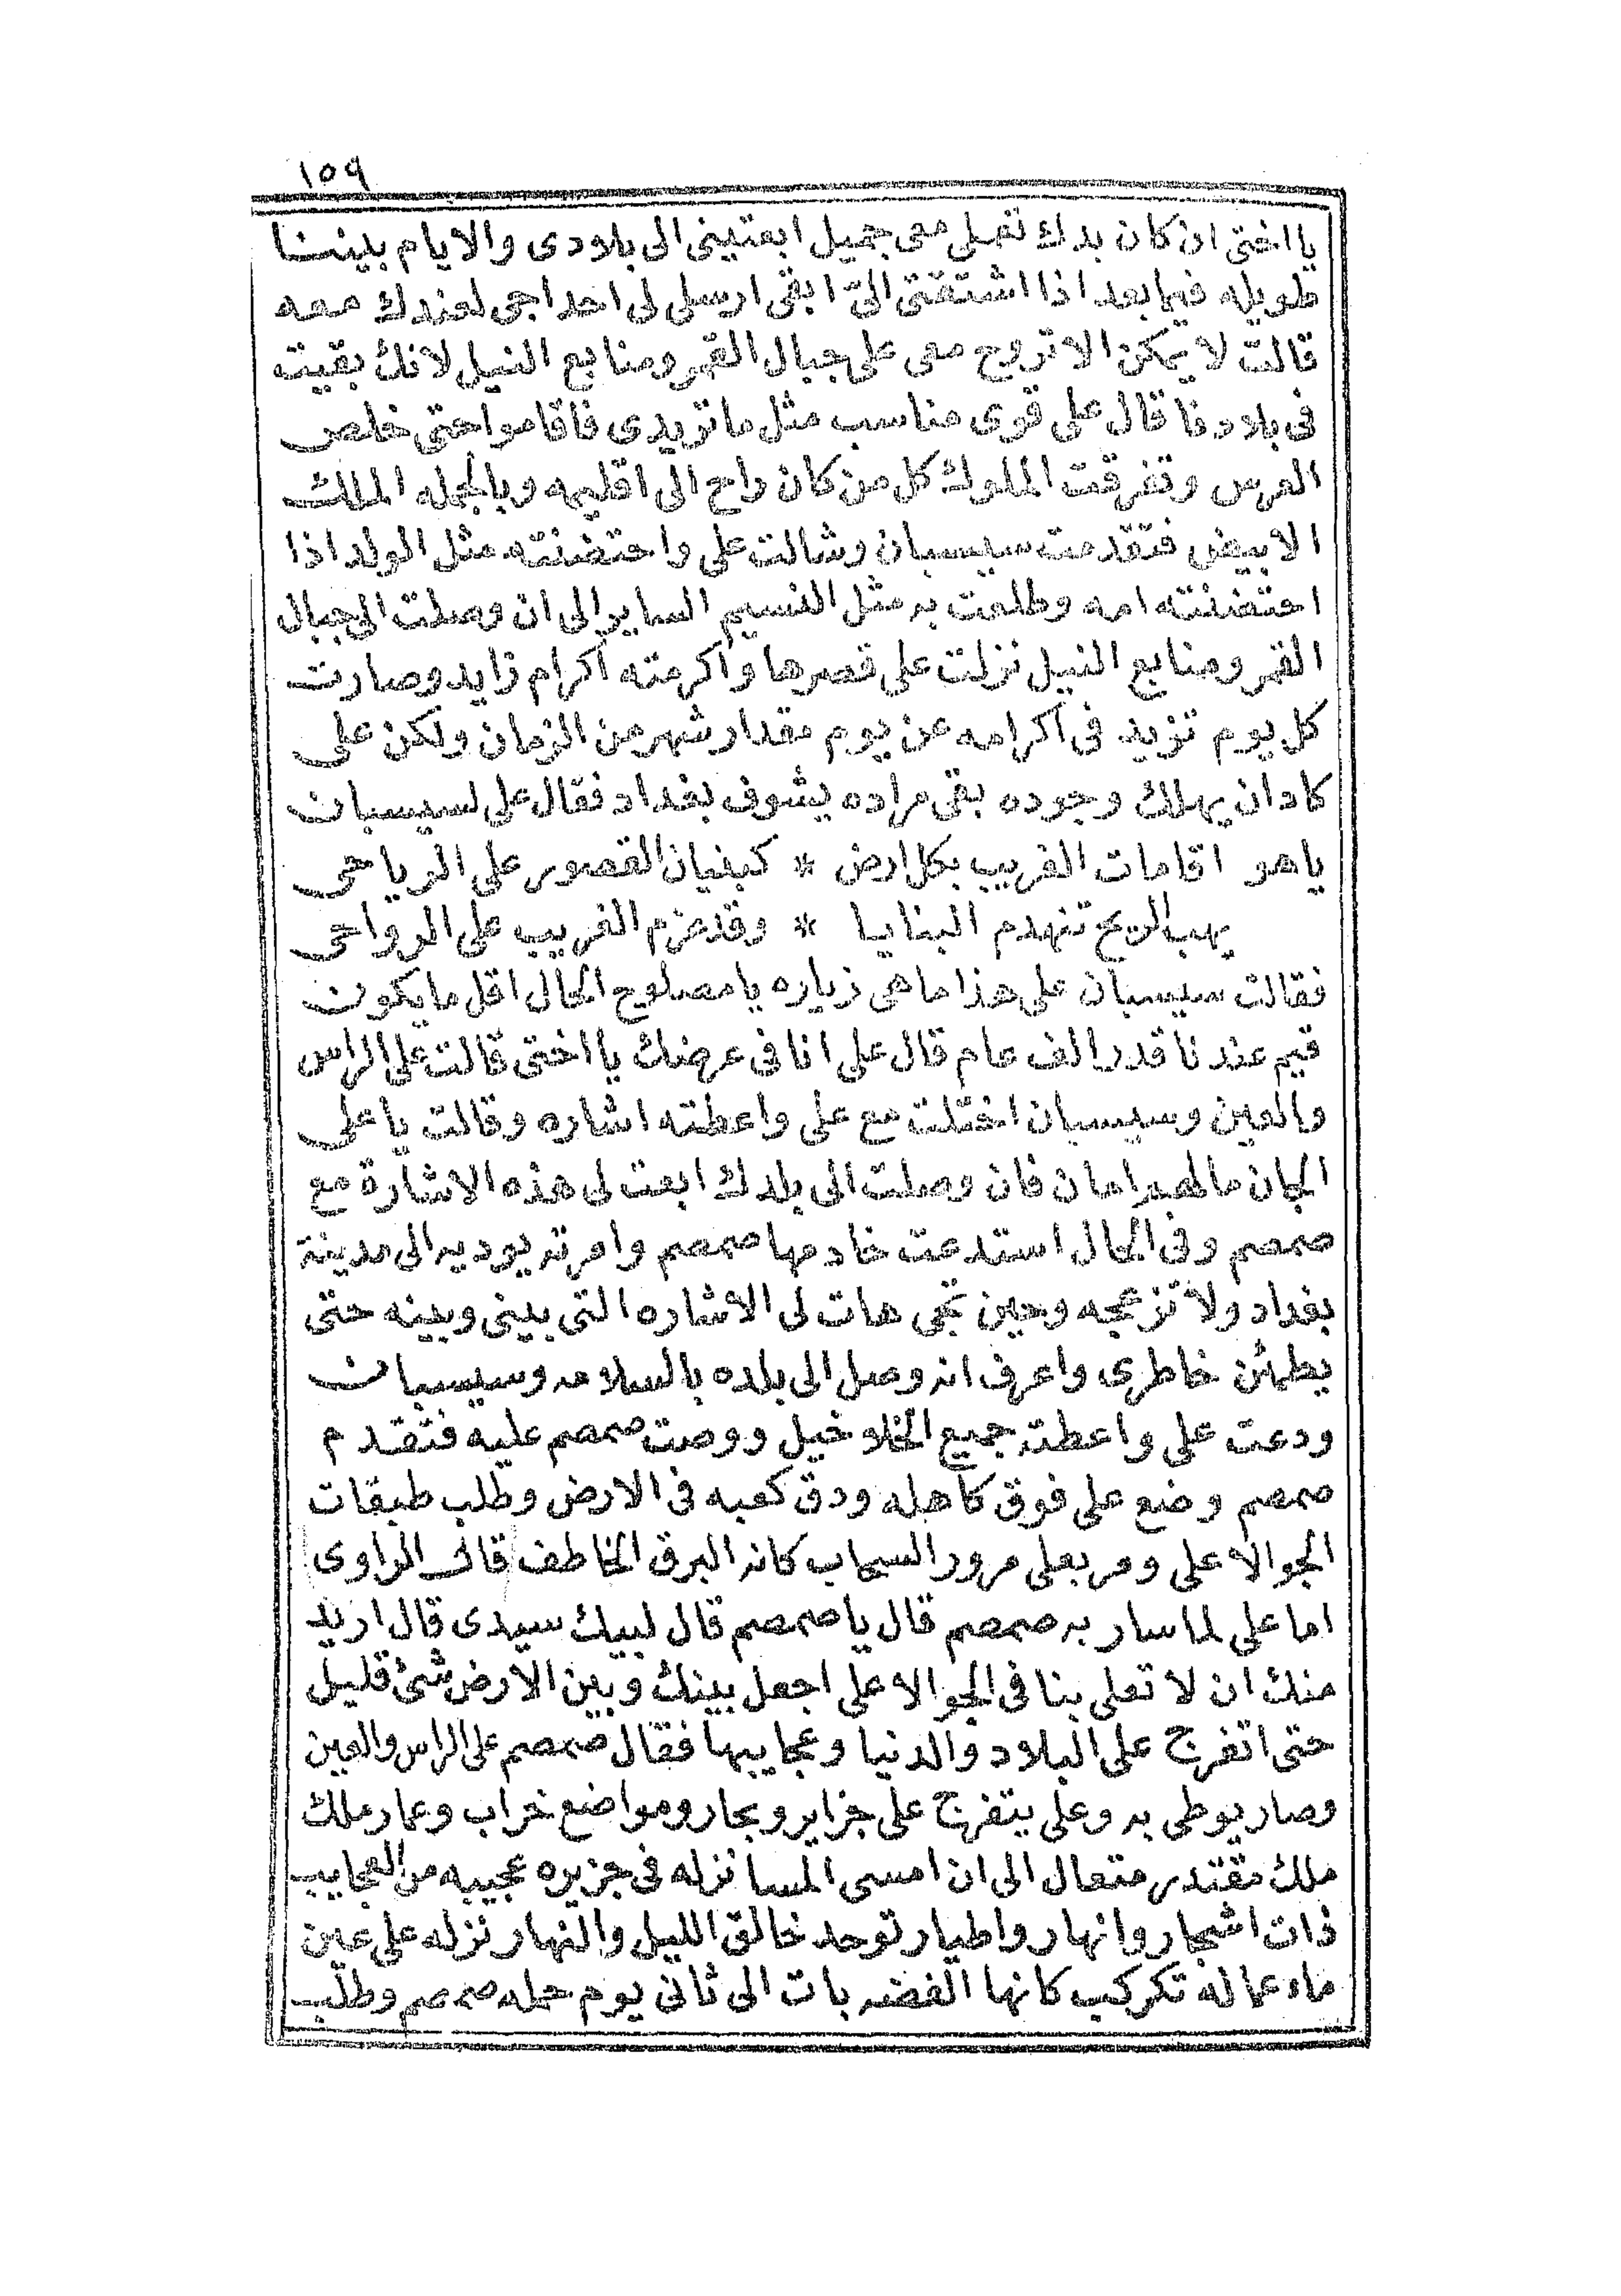 ١٥٩
يا اختى ان كان بدك تعملى معى جميل ابعتينى الى بلادى والايام بيننا
طويله فيما بعد اذا اشتقتى الىّ ابقى ارسلى لى احد اجى لعندك معه
قالت لا يمكن الا تروح معى على جبال القمر ومنابع النيل لانك بقيت
فى بلادنا قال على قوى مناسب مثل ما تريدى فاقاموا حتى خلص
العرس وتفرقت الملوك كل من كان راح الى اقليمه وبالجمله الملك
الابيض فتقدمت سيسبان وشالت على واحتضنته مثل الولد اذا
احتضنته امه وطلعت به مثل النسيم الساير الى ان وصلت الى جبال
القمر ومنابع النيل نزلت على قصرها واكرمته اكرام زايد وصارت
كل يوم تزيد فى اكرامه عن يوم مقدار شهر من الزمان ولكن على
كاد ان يهلك وجوده بقى مراده يشوف بغداد فقال على لسيسبان
يا هو اقامات الغريب بكل ارض * كبنيان القصور على الرياحى
يهب الريح تنهدم البنايا * وقد عزم الغريب على الرواحى
فقالت سيسبان على هذا ما هى زياره يا مصلوح الحال اقل ما يكون
قيم عندنا قدر الف عام قال على انا فى عرضك يا اختى قالت على الراس
والعين وسيسبان اختلت مع على واعطته اشاره وقالت يا على
الجان ما لهم امان فان وصلت الى بلدك ابعت لى هذه الاشارة مع
صمصم وفى الحال استدعت خادمها صمصم وامرته يوديه الى مدينة
بغداد ولا تزعجه وحين تجى هات لى الاشاره التى بينى وبينه حتى
يطمئن خاطرى واعرف انه وصل الى بلده بالسلامه وسيسبان
ودعت على واعطته جميع الخلاخيل ووصت صمصم عليه فتقدم
صمصم وضع على فوق كاهله ودق كعبه فى الارض وطلب طبقات
الجو الاعلى ومر بعلى مرور السحاب كانه البرق الخاطف قال الراوى
اما على لما سار به صمصم قال يا صمصم قال لبيك سيدى قال اريد
منك ان لا تعلى بنا فى الجو الاعلى اجعل بينك وبين الارض شئ قليل
حتى اتفرج على البلاد والدنيا وعجايبها فقال صمصم على الراس والعين
وصار يوطى به وعلى يتفرج على جزاير وبحار ومواضع خراب وعمار ملك
ملك مقتدر متعال الى ان امسى المسا نزله فى جزيره عجيبه من العجايب
ذات اشجار وانهار واطيار توحد خالق الليل والنهار نزله على عين
ماء عماله تكركب كانها الفضه بات الى ثانى يوم حمله صمصم وطلب